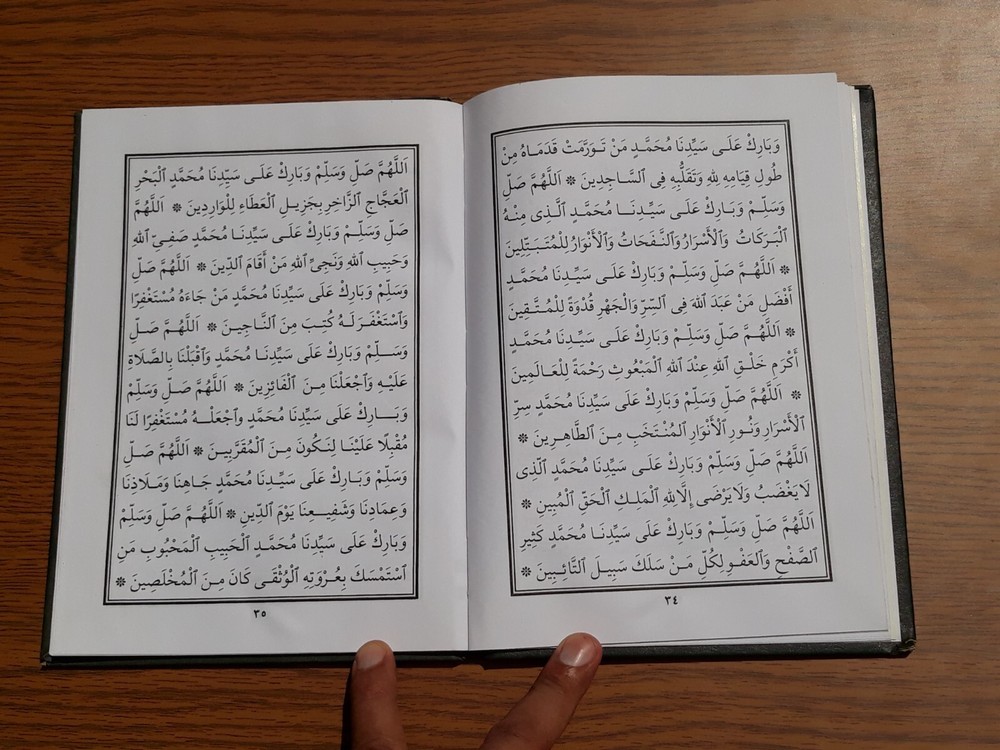 وَبَارِكْ عَلَى سَيِّدِنَا مُحَمَّدٍ مَنْ تَوَرَّمَتْ قَدَمَاهُ مِنْ
طُولِ قِيَامِهِ لِلهِ وَتَقَلُّبِهِ فِى ٱلسَّاجِدِينَ ۞ ٱللَّهُمَّ صَلِّ
وَسَلِّمْ وَبَارِكْ عَلَى سَيِّدِنَا مُحَمَّدٍ ٱلَّذِى مِنْهُ
ٱلْبَرَكَاتُ وَٱلْأَسْرَارُ وَٱلنَّفَحَاتُ وَٱلْأَنْوَارُ لِلْمُتَبَتِّلِينَ
۞ ٱللَّهُمَّ صَلِّ وَسَلِّمْ وَبَارِكْ عَلَى سَيِّدِنَا مُحَمَّدٍ
أَفْضَلِ مَنْ عَبَدَ ٱللهَ فِى ٱلسِّرِّ وَٱلْجَهْرِ قُدْوَةً لِلْمُتَّقِينَ
۞ ٱللَّهُمَّ صَلِّ وَسَلِّمْ وَبَارِكْ عَلَى سَيِّدِنَا مُحَمَّدٍ
أَكْرَمِ خَلْقِ ٱللهِ عِنْدَ ٱللهِ ٱلْمَبْعُوثِ رَحْمَةً لِلْعَالَمِينَ
۞ ٱللَّهُمَّ صَلِّ وَسَلِّمْ وَبَارِكْ عَلَى سَيِّدِنَا مُحَمَّدٍ سِرِّ
ٱلْأَسْرَارِ وَنُورِ ٱلْأَنْوَارِ ٱلْمُنْتَخَبِ مِنَ ٱلطَّاهِرِينَ ۞
ٱللَّهُمَّ صَلِّ وَسَلِّمْ وَبَارِكْ عَلَى سَيِّدِنَا مُحَمَّدٍ ٱلَّذِى
لَا يَغْضَبُ وَلَا يَرْضَى إِلَّا لِلهِ ٱلْمَلِكِ ٱلْحَقِّ ٱلْمُبِينِ ۞
ٱللَّهُمَّ صَلِّ وَسَلِّمْ وَبَارِكْ عَلَى سَيِّدِنَا مُحَمَّدٍ كَثِيرِ
ٱلصَّفْحِ وَٱلْعَفْوِ لِكُلِّ مَنْ سَلَكَ سَبِيلَ ٱلتَّائِبِينَ ۞
٣٤
ٱللَّهُمَّ صَلِّ وَسَلِّمْ وَبَارِكْ عَلَى سَيِّدِنَا مُحَمَّدٍ ٱلْبَحْرِ
ٱلْعَجَّاجِ ٱلزَّاخِرِ بِجَزِيلِ ٱلْعَطَاءِ لِلْوَارِدِينَ ۞ ٱللَّهُمَّ
صَلِّ وَسَلِّمْ وَبَارِكْ عَلَى سَيِّدِنَا مُحَمَّدٍ صَفِىِّ ٱللهِ
وَحَبِيبِ ٱللهِ وَنَجِىِّ ٱللهِ مَنْ أَقَامَ ٱلدِّينَ ۞ ٱللَّهُمَّ صَلِّ
وَسَلِّمْ وَبَارِكْ عَلَى سَيِّدِنَا مُحَمَّدٍ مَنْ جَاءَهُ مُسْتَغْفِرًا
وَٱسْتَغْفَرَ لَهُ كُتِبَ مِنَ ٱلنَّاجِينَ ۞ ٱللَّهُمَّ صَلِّ
وَسَلِّمْ وَبَارِكْ عَلَى سَيِّدِنَا مُحَمَّدٍ وَٱقْبَلْنَا بِالصَّلَاةِ
عَلَيْهِ وَٱجْعَلْنَا مِنَ ٱلْفَائِزِينَ ۞ ٱللَّهُمَّ صَلِّ وَسَلِّمْ
وَبَارِكْ عَلَى سَيِّدِنَا مُحَمَّدٍ وَٱجْعَلْهُ مُسْتَغْفِرًا لَنَا
مُقْبِلًا عَلَيْنَا لِنَكُونَ مِنَ ٱلْمُقَرَّبِينَ ۞ ٱللَّهُمَّ صَلِّ
وَسَلِّمْ وَبَارِكْ عَلَى سَيِّدِنَا مُحَمَّدٍ جَاهِنَا وَمَلَاذِنَا
وَعِمَادِنَا وَشَفِيعِنَا يَوْمَ ٱلدِّينِ ۞ ٱللَّهُمَّ صَلِّ وَسَلِّمْ
وَبَارِكْ عَلَى سَيِّدِنَا مُحَمَّدٍ ٱلْحَبِيبِ ٱلْمَحْبُوبِ مَنِ
ٱسْتَمْسَكَ بِعُرْوَتِهِ ٱلْوُثْقَى كَانَ مِنَ ٱلْمُخْلَصِينَ ۞
٣٥